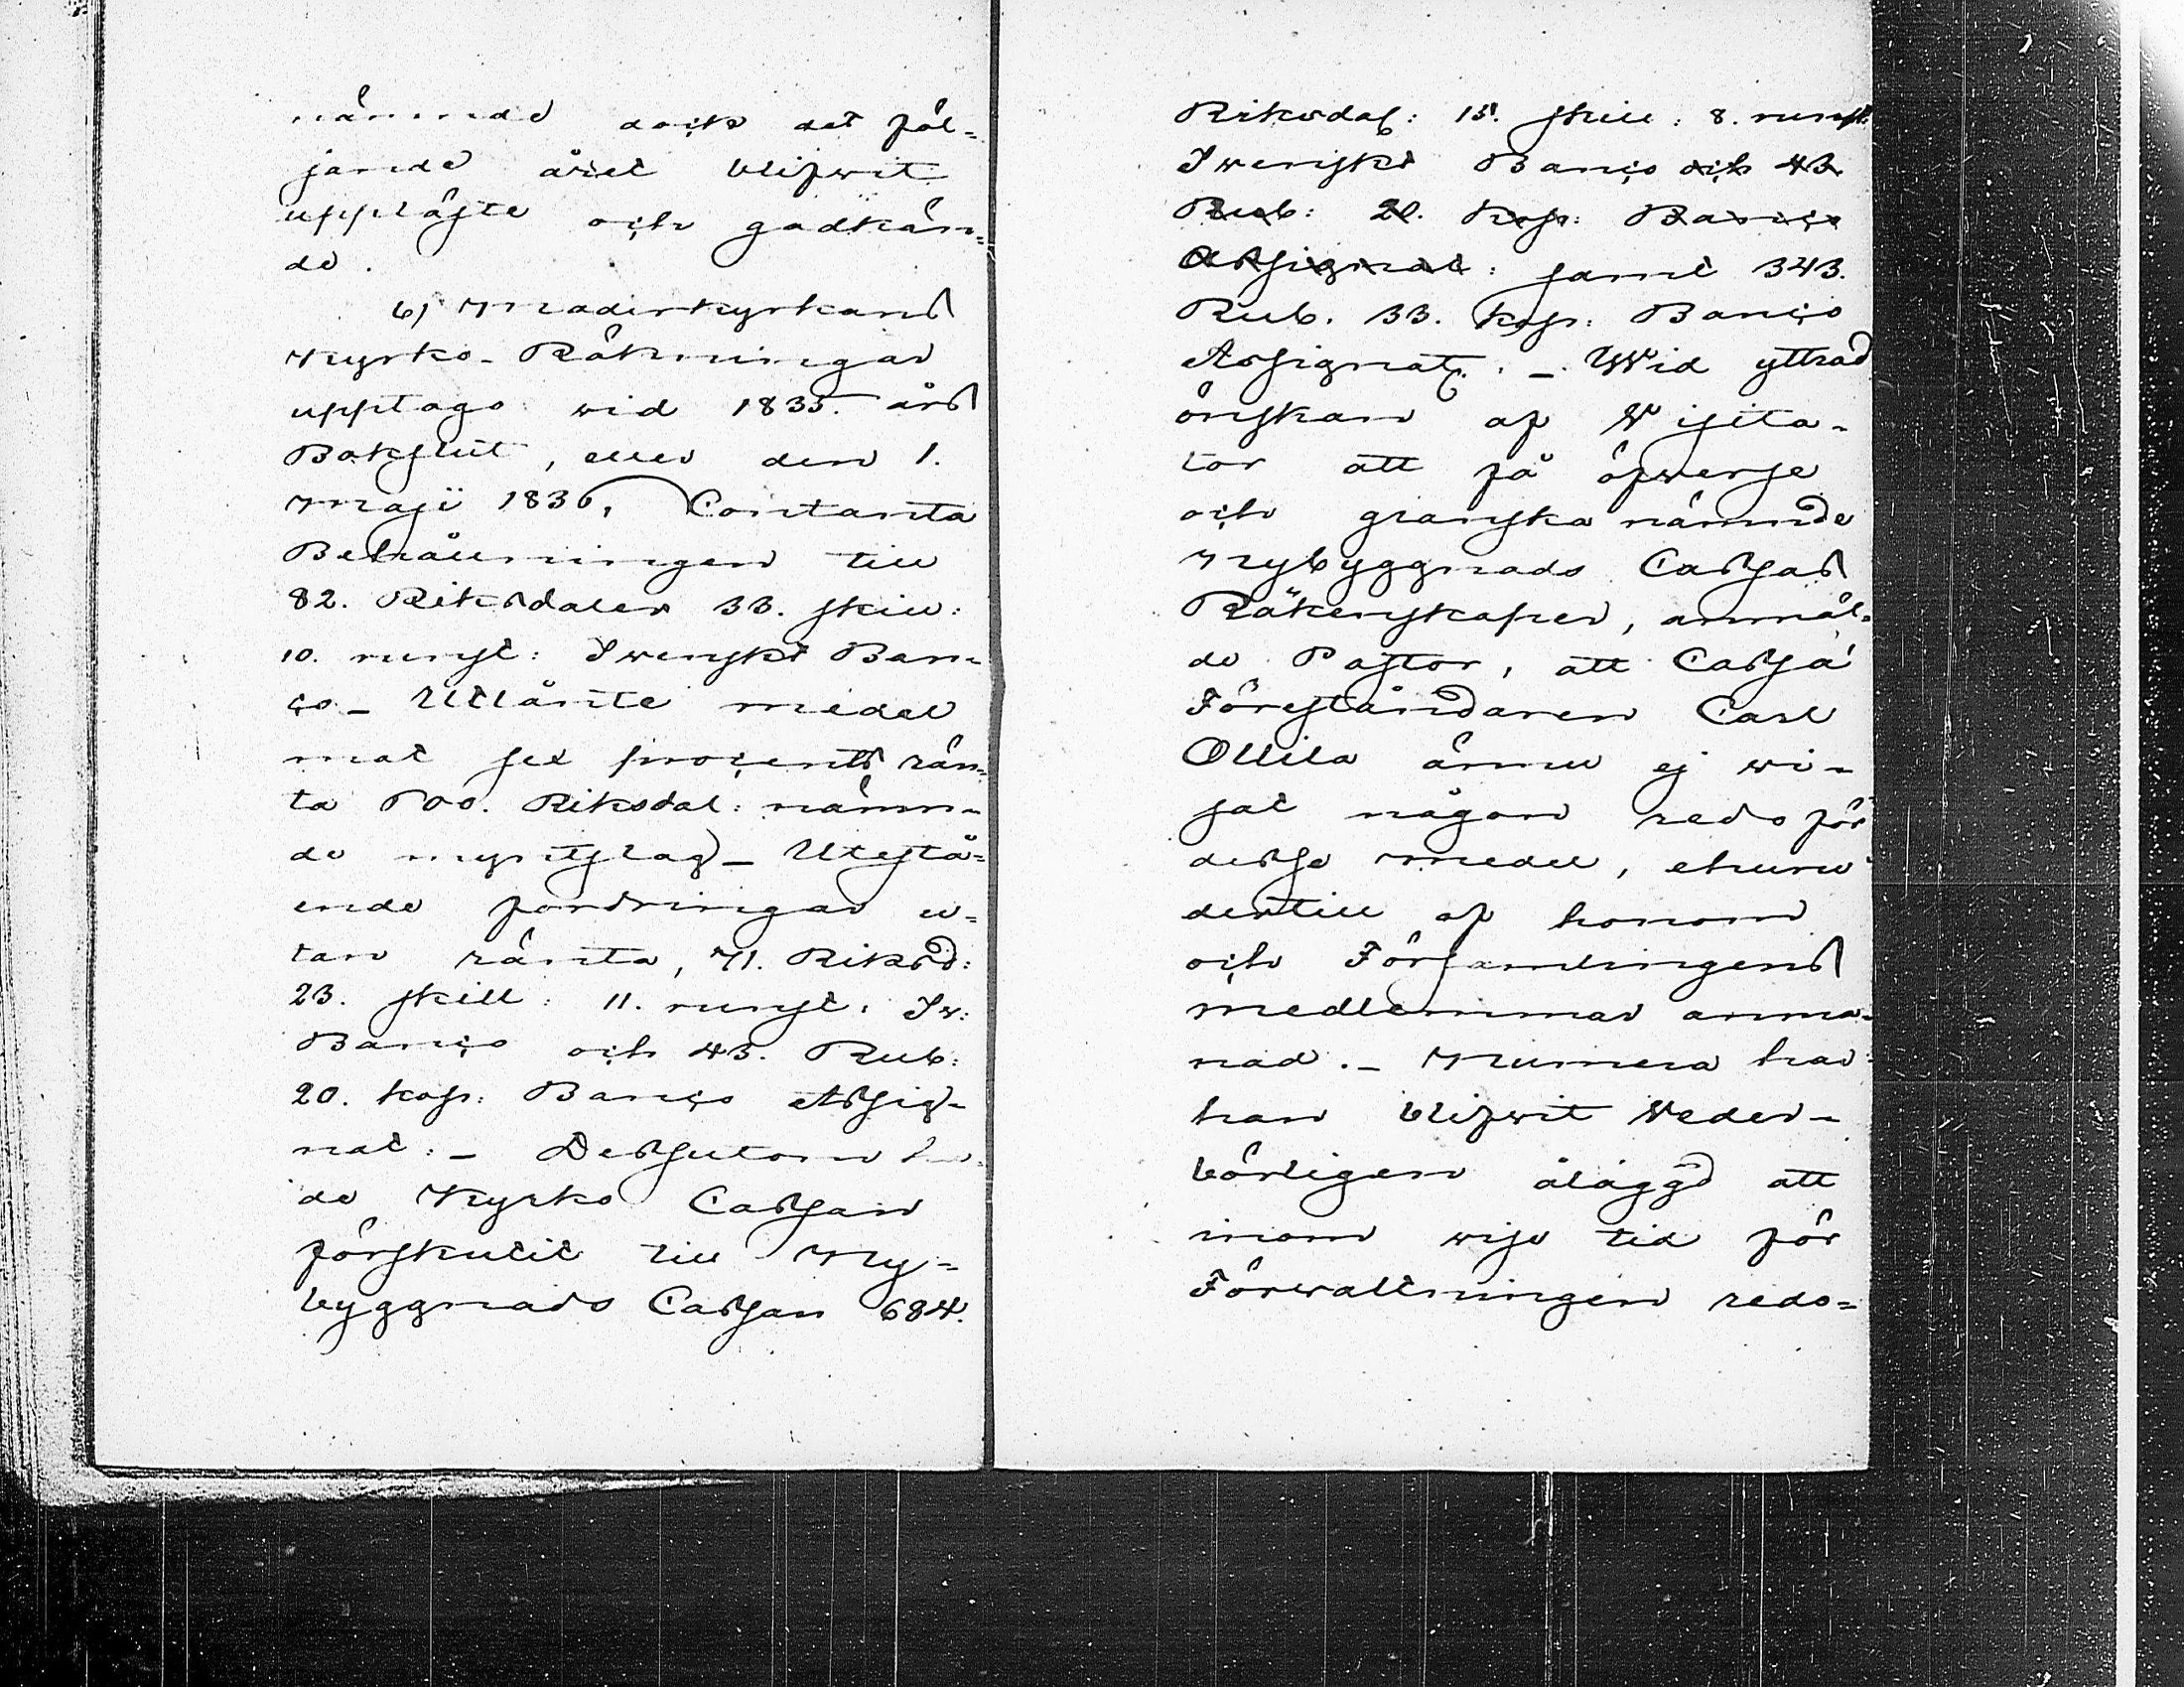 nämnde dock det föl-
jande året blifwit
uppläste och godkän-
de.
b) Moderkyrkans
Kyrko-Räkningar
upptogo wid 1835. års
Bokslut, eller den 1.
Maji 1836, Contanta
Behållningen till
82. Riksdaler 33. skill:
10. runst: Swenskt Ban-
co_ Utlånte medel
mot sex procents rän-
ta 500. Riksdal: nämn-
de myntslag_ Utestå-
ende fordringar u-
tan ränta, 71. Riksd:
23. skill: 11. runst: Sw:
Banco och 43. Rub:
20. kop: Banco Assig-
nat:_ Dessutom ha-
de Kyrko Cassan
förskutit till Ny-
byggnads Cassan 684.
Riksdal: 15. skill: 8. runst.
Swenskt Banco och 43
Rub: 20. Kop: Banco
Assignat: samt 343.
Rub. 33. kop: Banco
Assignat._ Wid yttrad
önskan af Visita-
tor att få öfwerse
och granska nämnde
Nybyggnads Cassas
Räkenskaper, anmäl-
de Pastor, att Cassa
Föreståndaren Carl
Ollila ännu ej wi-
sat någon redo för
desse medel, ehuru
dertill af honom
och Församlingens
medlemmar anma-
nad._ Numera har
han blifwit Weder-
börligen ålaggd att
inom wiss tid för
Förwaltningen redo-